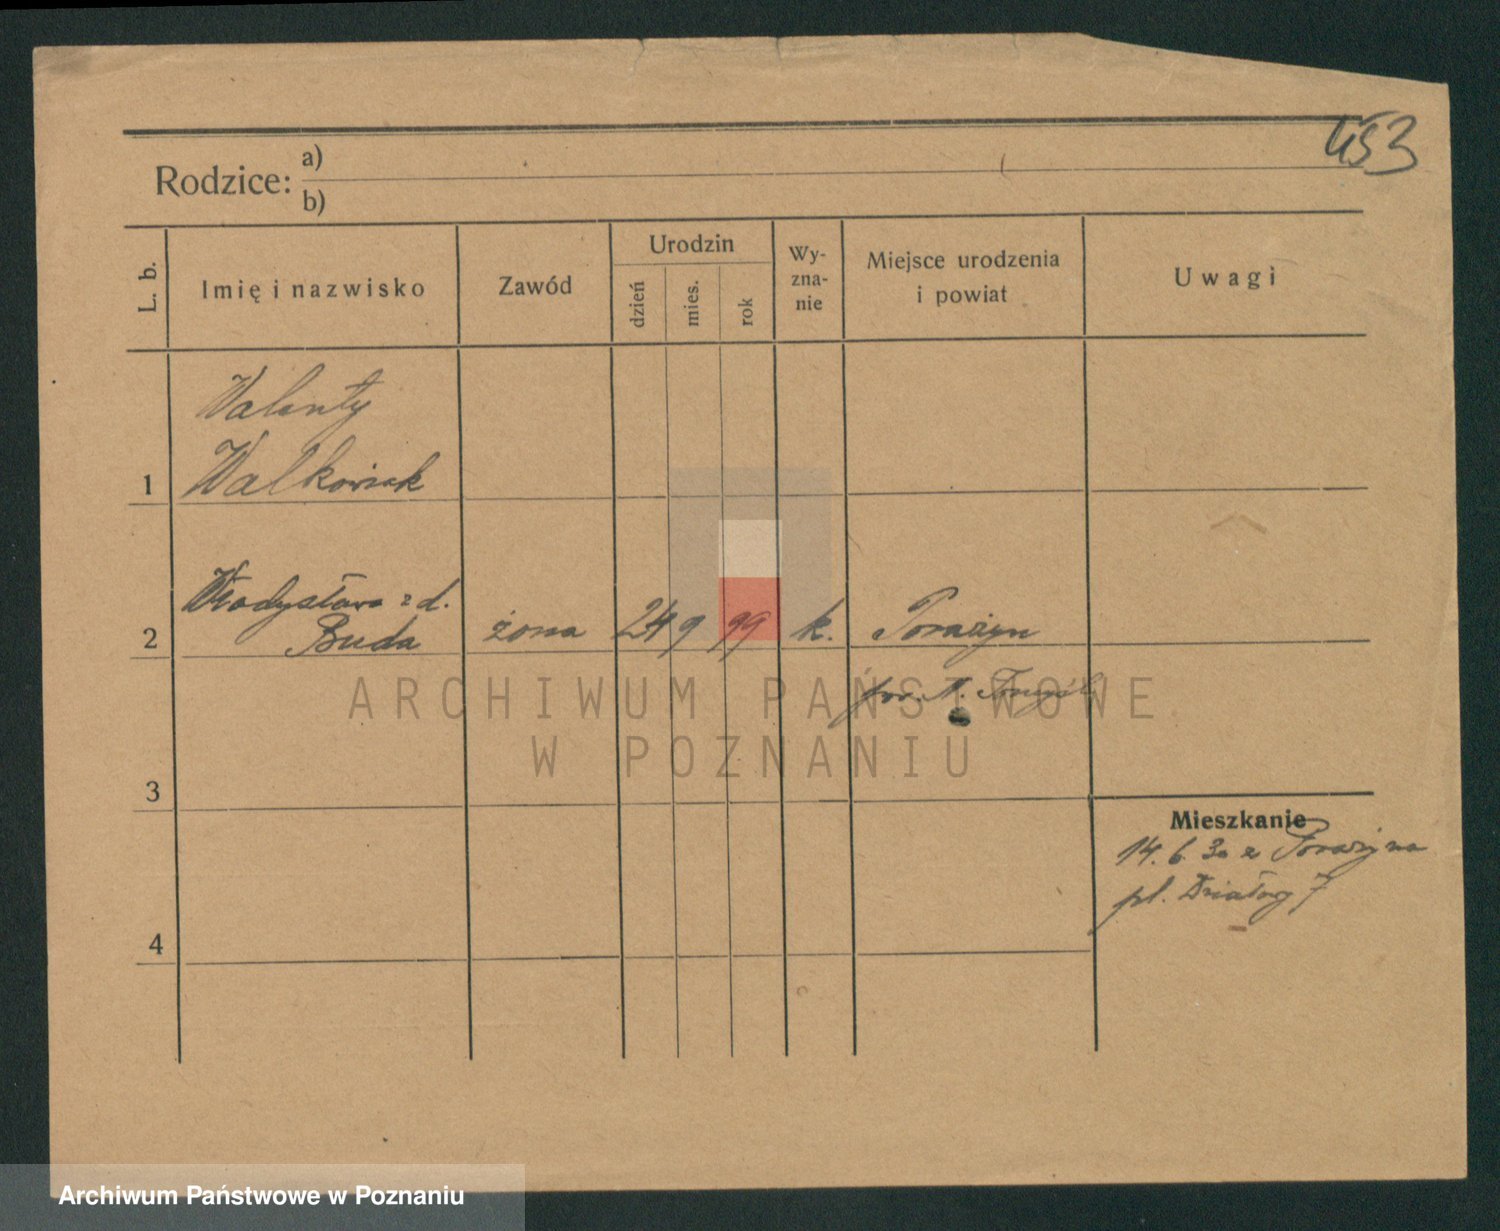 453
Rodzice: a)
b)
L. b.
Imię i nazwisko
Zawód
Urodzin
dzień
mies.
rok
Wy-
zna-
nie
Miejsce urodzenia
i powiat
Uwagi
Walenty
1 Walkowiak
Władysława z d.
2 Buda żona 24 9 99 k. Porażyn
pow. N. Tomyśl
3
Mieszkanie
14. 6. 30 z Porażyna
pl. Działowy 7
4
ARCHIWUM PAŃSTWOWE
W POZNANIU
Archiwum Państwowe w Poznaniu